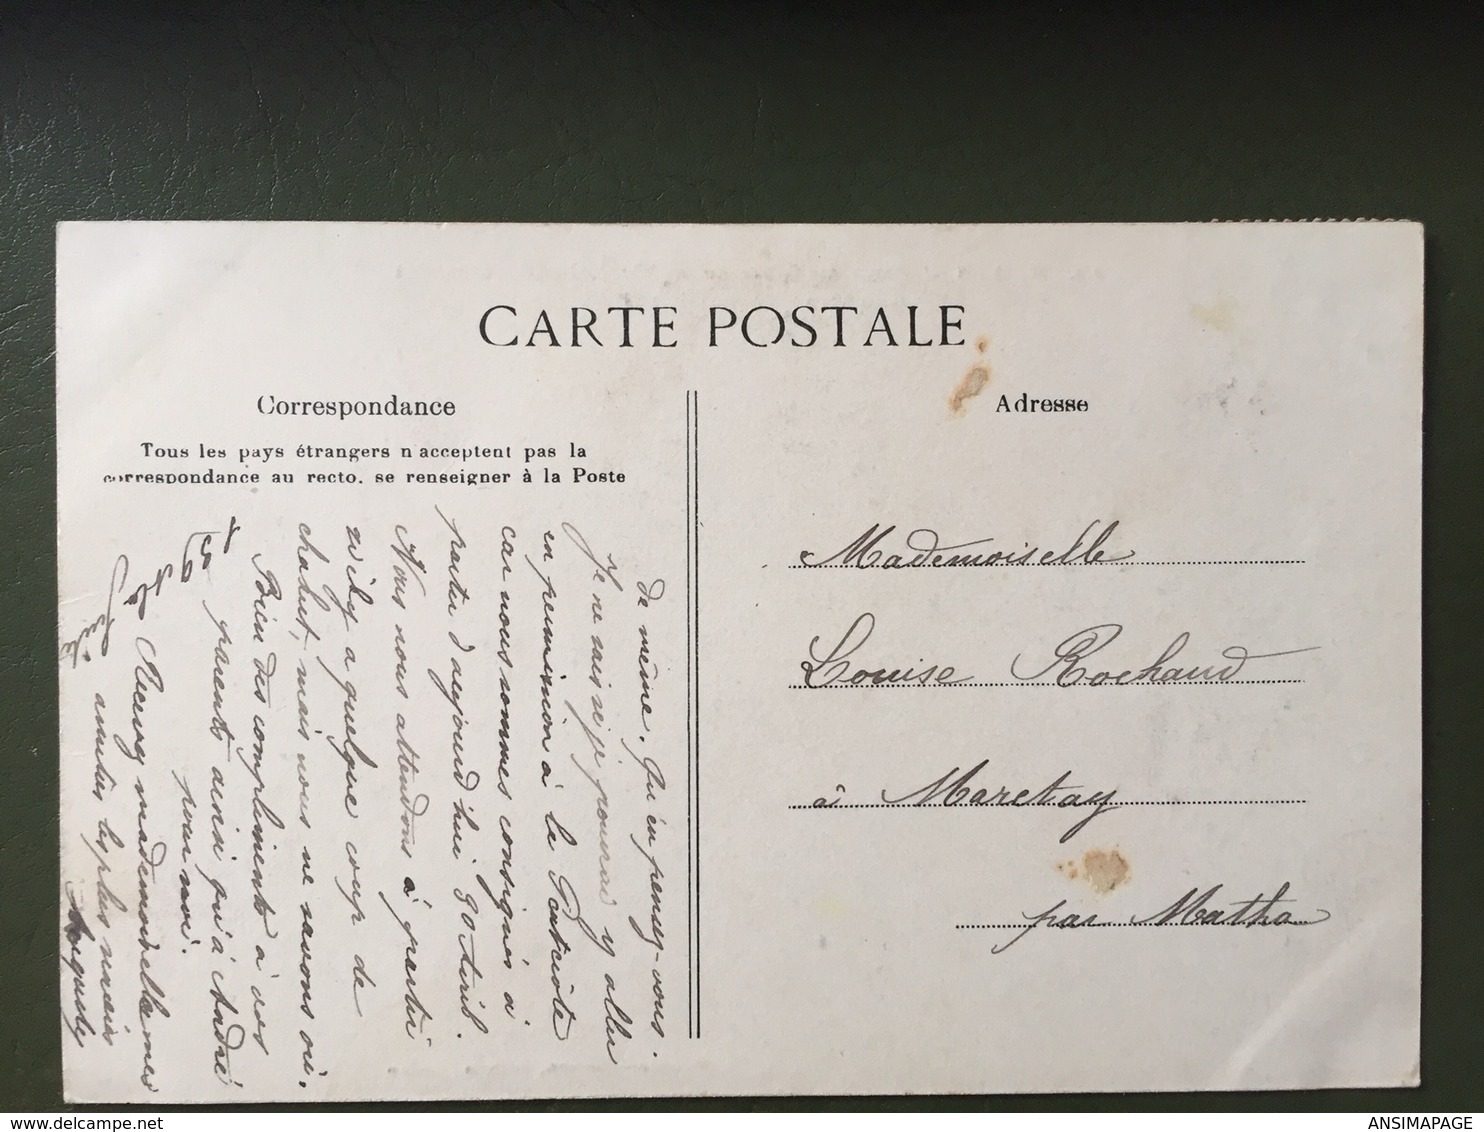 CARTE POSTALE
Correspondance
Tous les pays étrangers n'acceptent pas la
correspondance au recto. se renseigner à la Poste
de même. Qu'en pensez-vous.
Je ne sais si je pourrai y aller
en permission à la Pentecôte
car nous sommes consignés à
partir d'aujourd'hui 30 Avril.
Nous nous attendons à partir
s'il y a quelque coup de
chahut, mais nous ne savons où.
Bien des compliments à vos
parents ainsi qu'à André
pour moi.
Recevez mademoiselle mes
amitiés les plus
Adresse
Mademoiselle
Louise Rochaud
à Maretay
par Matha
ANSIMAPAGE